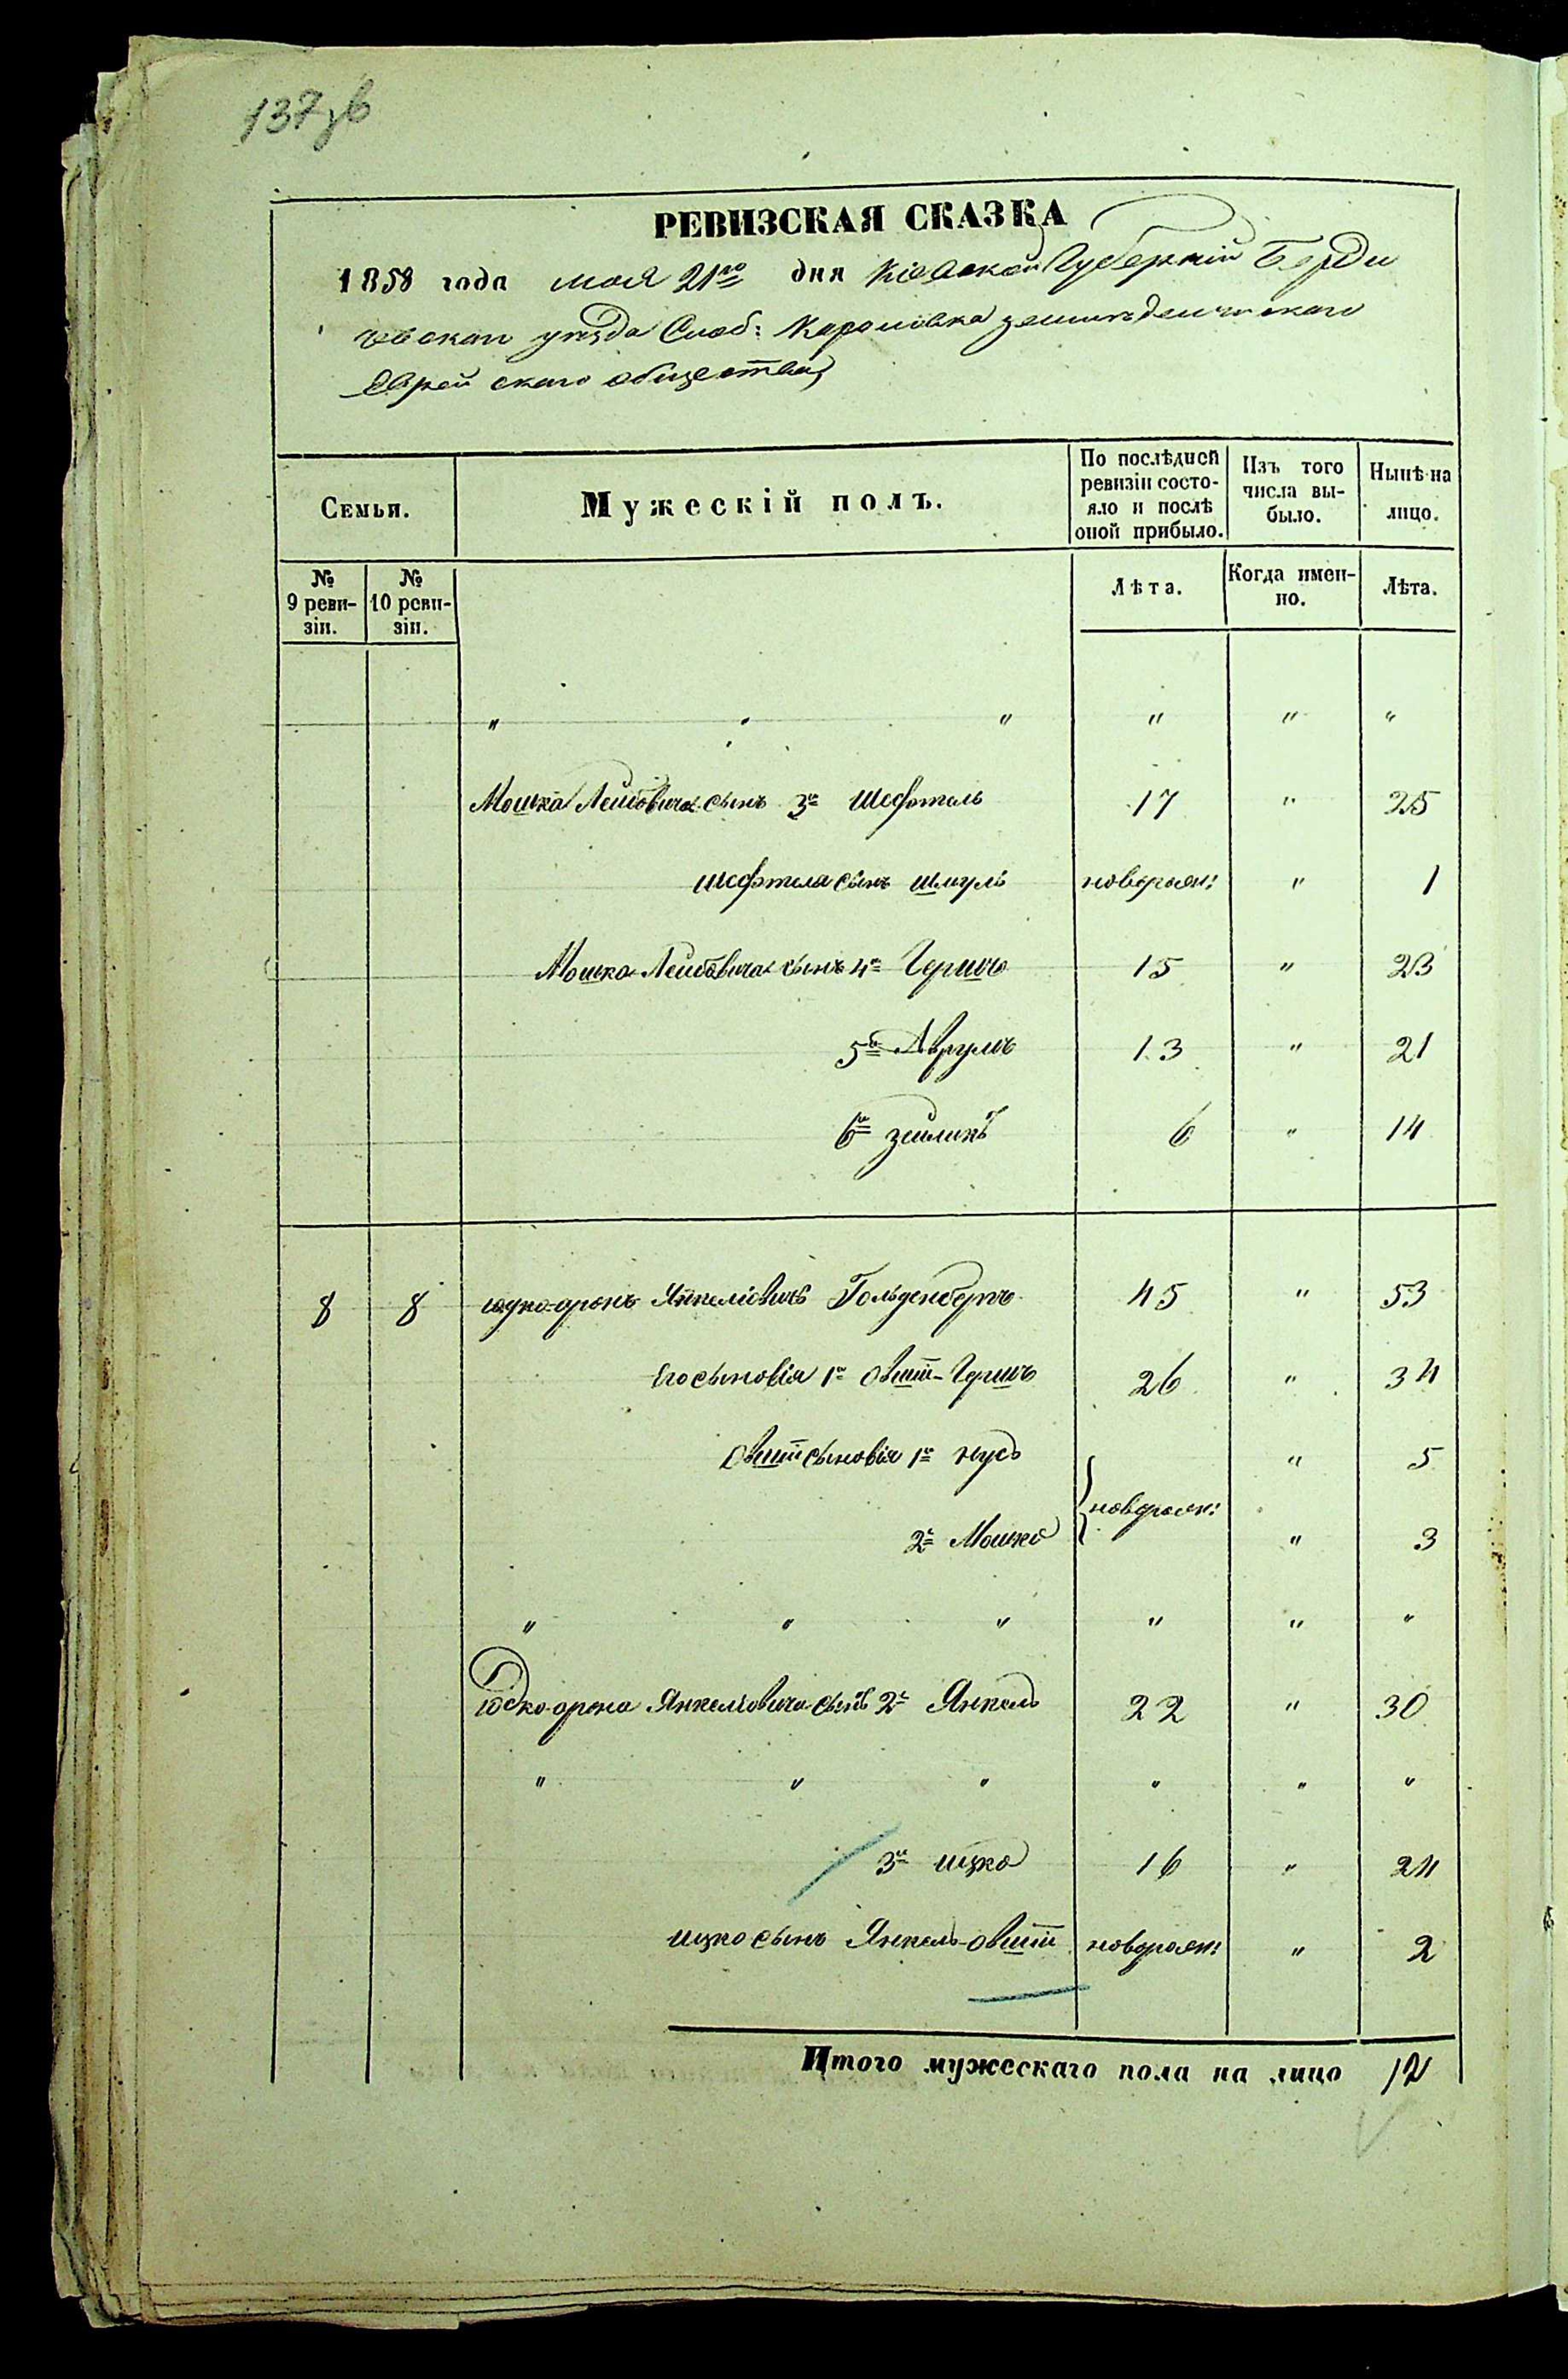 137зв
РЕВИЗСКАЯ СКАЗКА
1858 года мая 21го дня Кіевской Губерніи Берди
чевскаго уѣзда Слоб: Каролювка
Еврейскаго общества,
Семьи. Мужескій полъ. По послѣдней ревизіи состояло и послѣ оной прибыло. Изъ того числа выбыло. Нынѣ на лицо.
№ 9 ревизіи. № 10 ревизіи. Лѣта. Когда именно. Лѣта.
" " " " " "
Мошка Лейбовича сынъ 3й Шефтель 17 " 25
Шефтеля сынъ Шмуль новорож: " 1
Мошка Лейбовича сынъ 4й Гершъ 15 " 23
5й Аврумъ 13 " 21
6й Зейликъ 6 " 14
8 8 Юдко-аронъ Янкеліовичъ Гольденбергъ 45 " 53
Его сыновія 1й Овшій-Гершъ 26 " 34
Овшія сыновія 1й Нусъ " 5
новорож:
2й Мошко " 3
" " " " " "
Юдко-арона Янкеліовича сынъ 2й Янкель 22 " 30
" " " " " "
3й Ицко 16 " 24
Ицко сынъ Янкель-Овшій новорож: " 2
Итого мужескаго пола на лицо 12